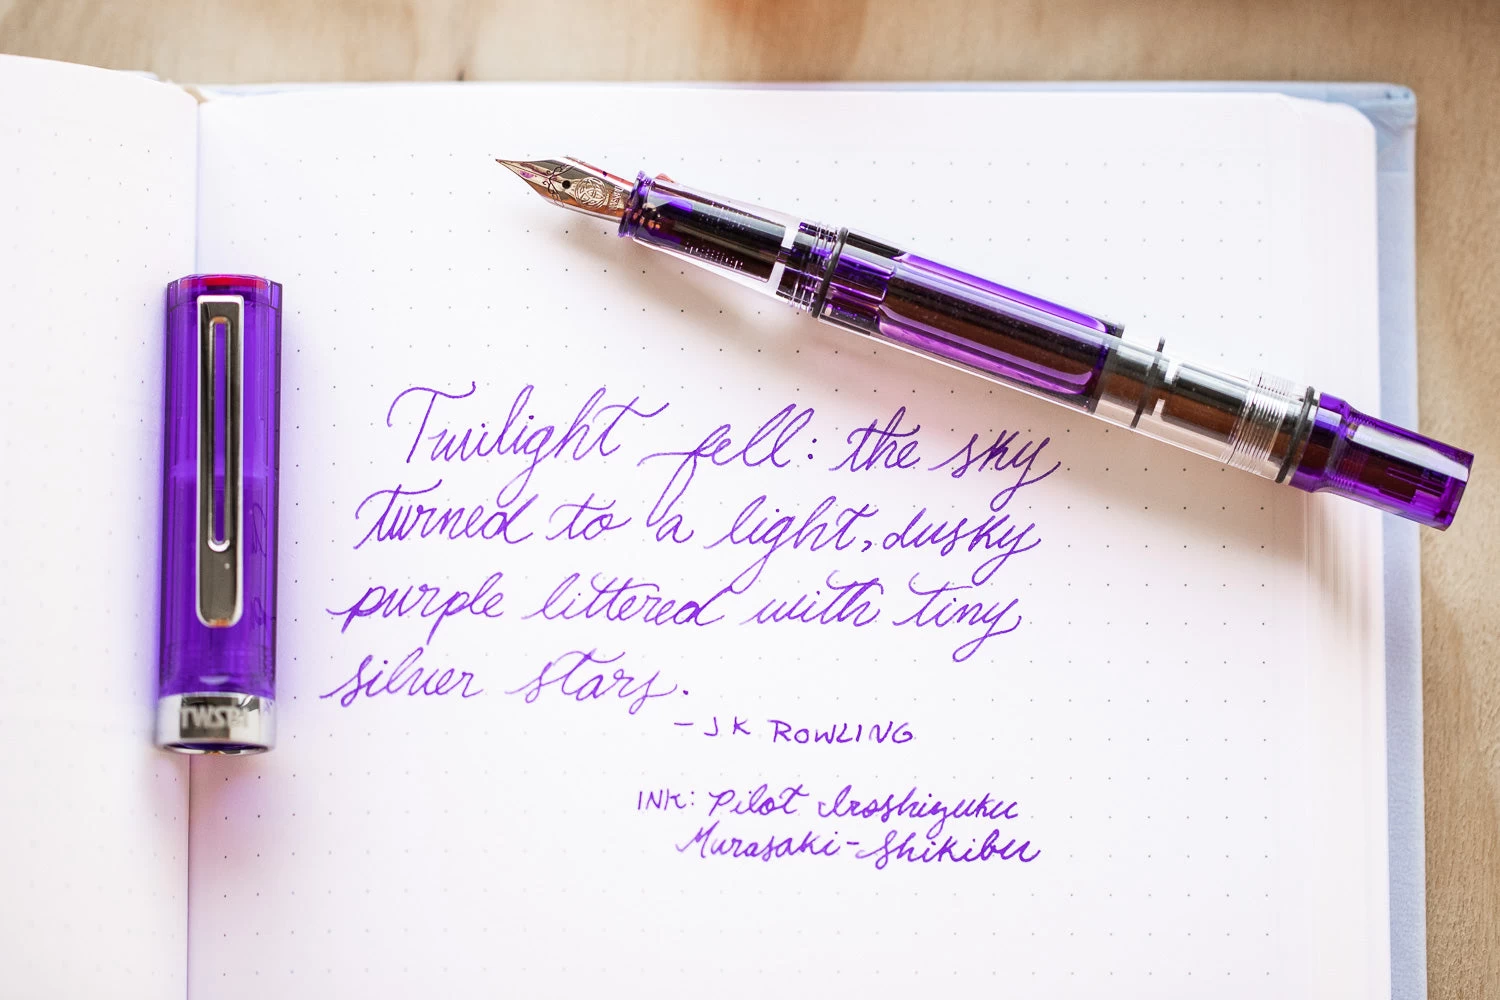 Twilight fell: the sky
turned to a light, dusky
purple littered with tiny
silver stars.
- J K ROWLING
INK: Pilot Iroshizuku
Murasaki-Shikibu
TWSBI